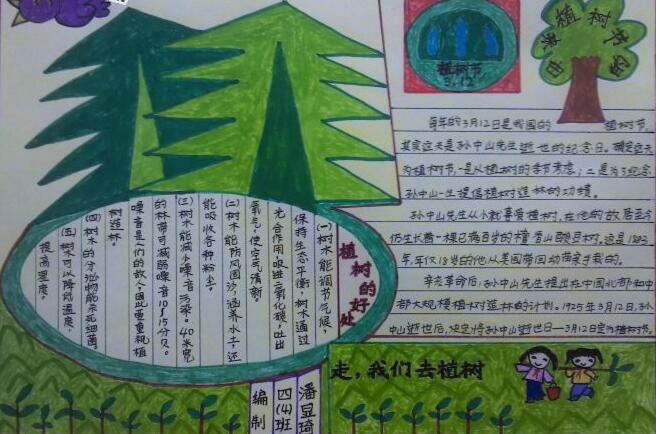 植树节
3.12
植树节的
由来
每年的3月12日是我国的 植树节,
其实这天是孙中山先生逝世的纪念日。确定这天
为植树节,一是从植树的季节考虑;二是为了纪念
孙中山一生提倡植树造林的功绩。
孙中山先生从小就喜爱植树,在他的故居至今
仍生长着一棵已满百岁的檀香山酸豆树。这是1883
年,年仅18岁的他从美国带回动苗亲手栽的。
辛亥革命后,孙中山先生提出在中国北部和中
部大规模植树造林的计划。1925年3月12日,孙
中山逝世后,决定将孙中山逝世日—3月12日定为植树节。
植树的好处
(一)树木能调节气候,
保持生态平衡,树木通过
光合作用,吸进二氧化碳,吐出
氧气,使空气清新。
(二)树木能防风固沙,涵养水土,还
能吸收各种粉尘。
(三)树木能减少噪音污染。40米宽
的林带可减弱噪音10~15分贝。
噪音是人们的敌人,因此要重视植
树造林。
(四)树木的分泌物能杀死细菌。
(五)树木可以降低温度,
提高湿度。
走,我们去植树
潘显琦
四(4)班
编制